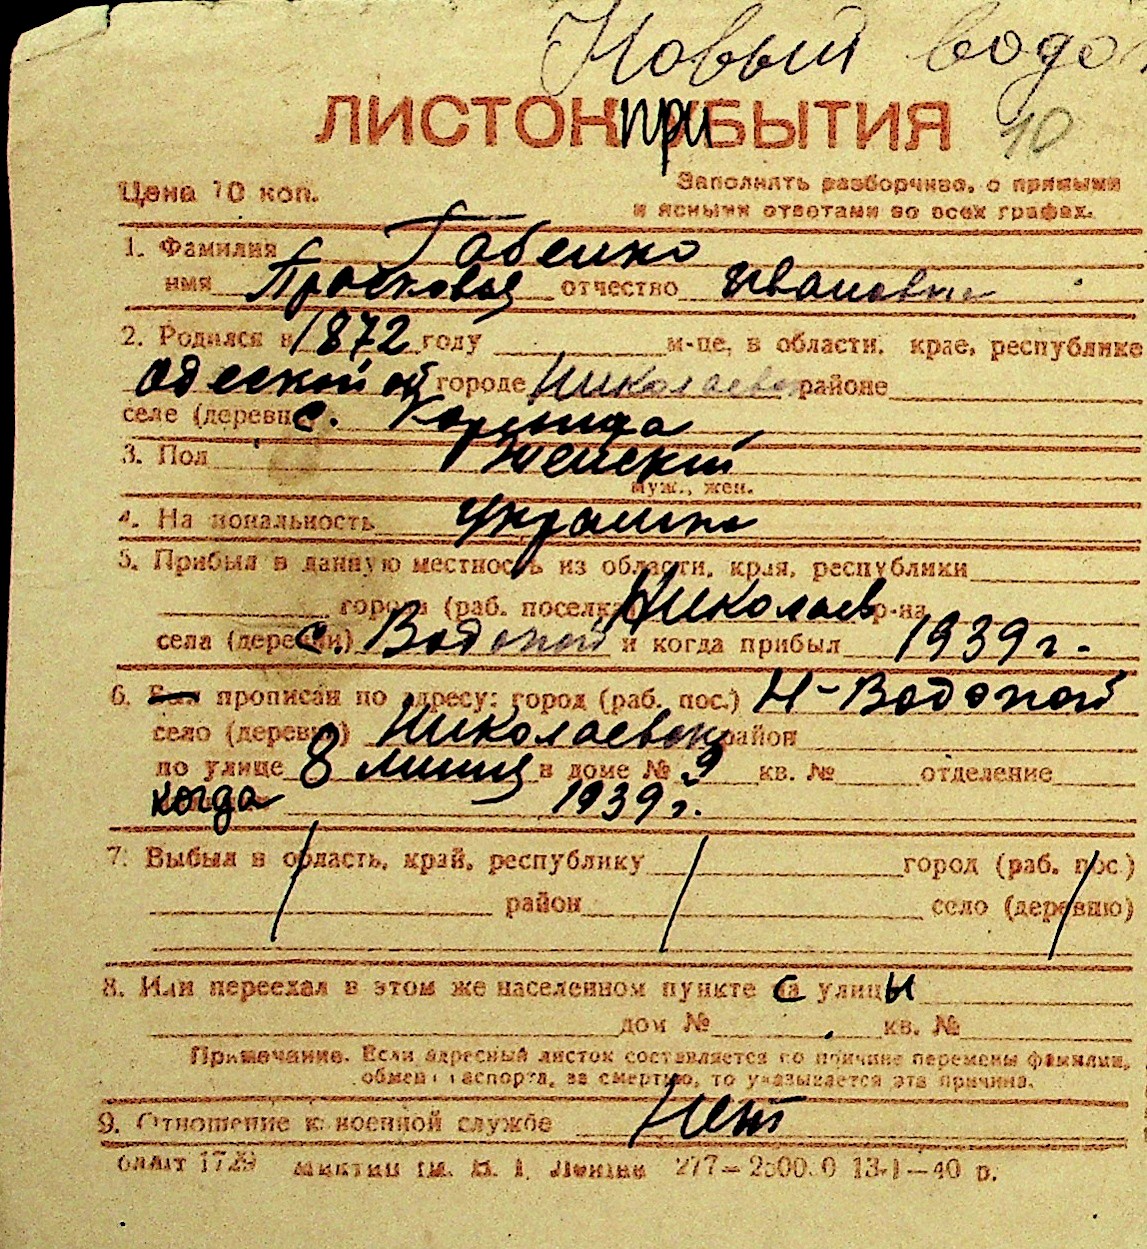 Новый водоп
ЛИСТОК при УБЫТИЯ
10
Цена 10 коп.
Заполнять разборчиво, с прямыми
и ясными ответами во всех графах.
1. Фамилия Габенко
имя Прасковья отчество Ивановна
2. Родился в 1872 году м-це, в области, крае, республике
Одеской об городе Николаевск районе
селе (деревне) с.
3. Пол Женский
муж., жен.
4. Национальность Украинка
5. Прибыл в данную местность из области, края, республики
города (раб. поселка) Николаев р-на
села (деревни) с. Водопой и когда прибыл 1939 г.
6. Был прописан по адресу: город (раб. пос.) Н-Водопой
село (деревню) Николаевск район
по улице 8 линия в доме № 9 кв. № отделение
когда 1939 г.
7. Выбыл в область, край, республику город (раб. пос.)
район село (деревню)
8. Или переехал в этом же населенном пункте с улицы
дом № кв. №
Примечание. Если адресный листок составляется по причине перемены фамилии,
обмена паспорта, за смертью, то указывается эта причина.
9. Отношение к военной службе Нет
1729 277—25000 13-I—40 р.